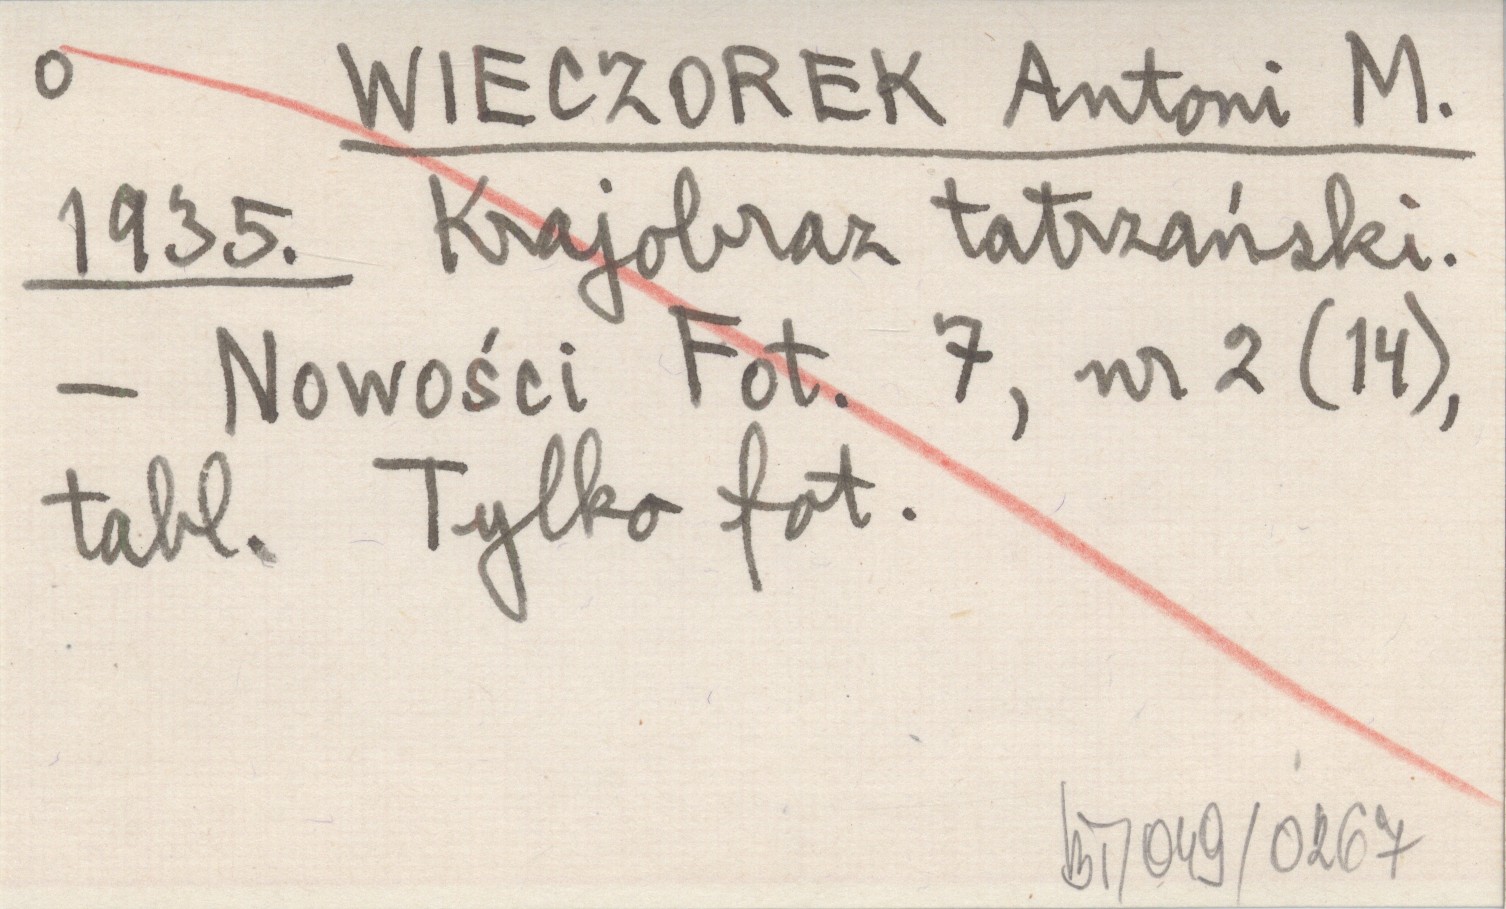 o WIECZOREK Antoni M.
1935. Krajobraz tatrzański.
– Nowości Fot. 7, nr 2 (14),
tabl. Tylko fot.
049/0267